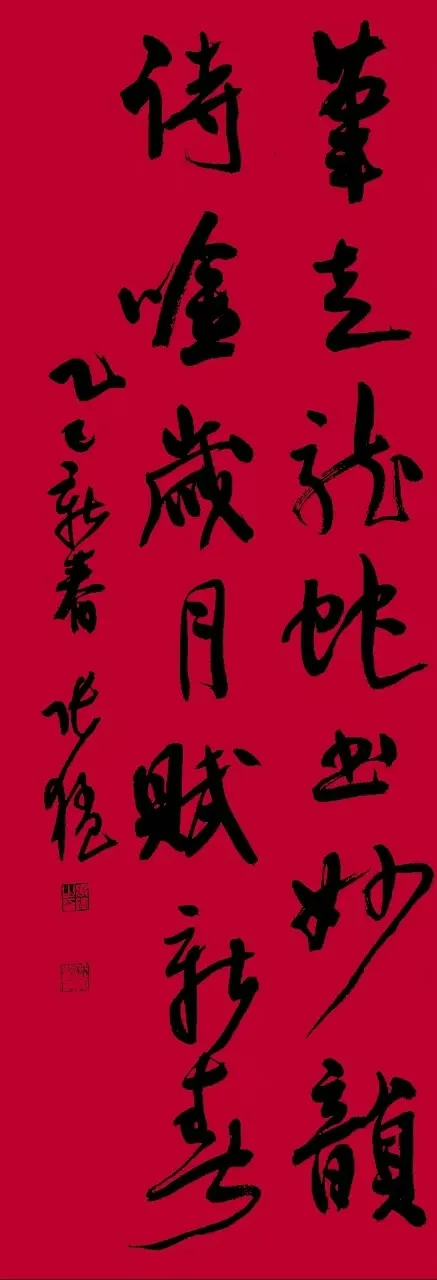 筆走龍蛇出妙韻
詩唫歲月賦新春
乙巳新春 张